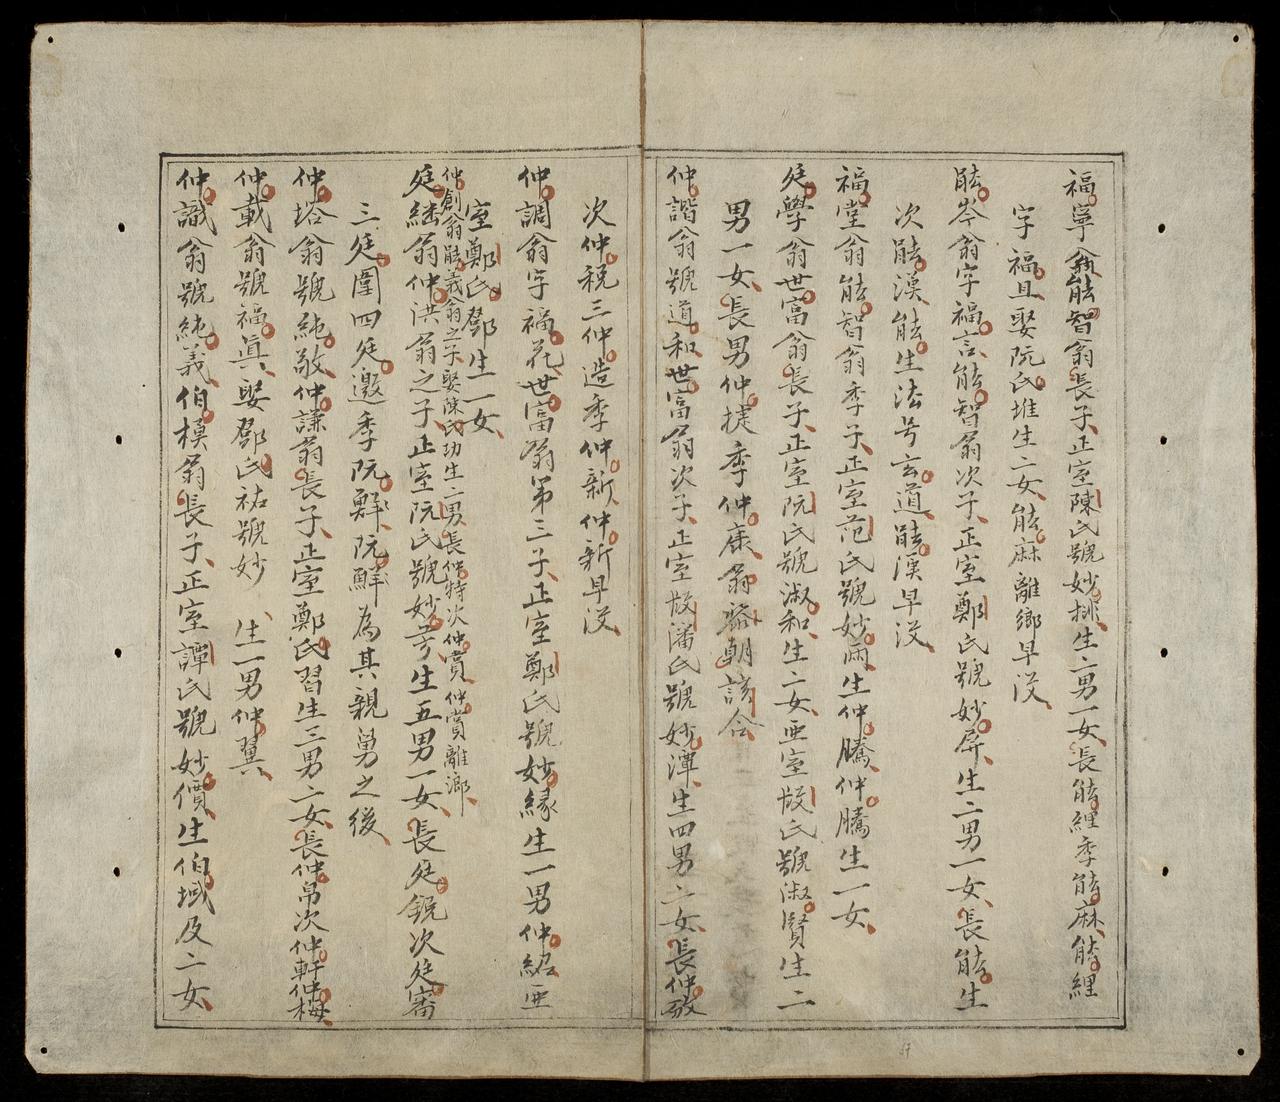 福寧翁能智翁長子正室陳氏號妙排生二男一女長能經季能麻能經
字福且娶阮氏堆生二女能麻離鄉早没
能岑翁字福言能智翁次子正室鄭氏號妙屏生二男一女長能生
次能漢能生法号玄道能漢早没
福堂翁能智翁季子正室范氏號妙兩生仲騰仲騰生一女
廷學翁世富翁長子正室阮氏號淑和生二女亜室段氏號淑賢生二
男一女長男仲捷季仲康翁蔡朝該合
仲諧翁號道和世富翁次子正室段潘氏號妙潭生四男二女長仲敬
次仲税三仲造季仲新仲新早没
仲調翁字福花世富翁第三子正室鄭氏號妙緣生一男仲紹亜
室鄭氏鄧生一女
仲創翁能義翁之子娶陳氏功生二男長仲特次仲賞仲賞離鄉
廷繼翁仲洪翁之子正室阮氏號妙芳生五男一女長廷銳次廷審
三廷圍四廷邀季阮鮮阮鮮為其親舅之後
仲塔翁號純敬仲謙翁長子正室鄭氏習生三男二女長仲帛次仲軒仲梅
仲載翁號福眞娶鄧氏祐號妙 生一男仲翼
仲識翁號純義伯模翁長子正室譚氏號妙價生伯域及二女